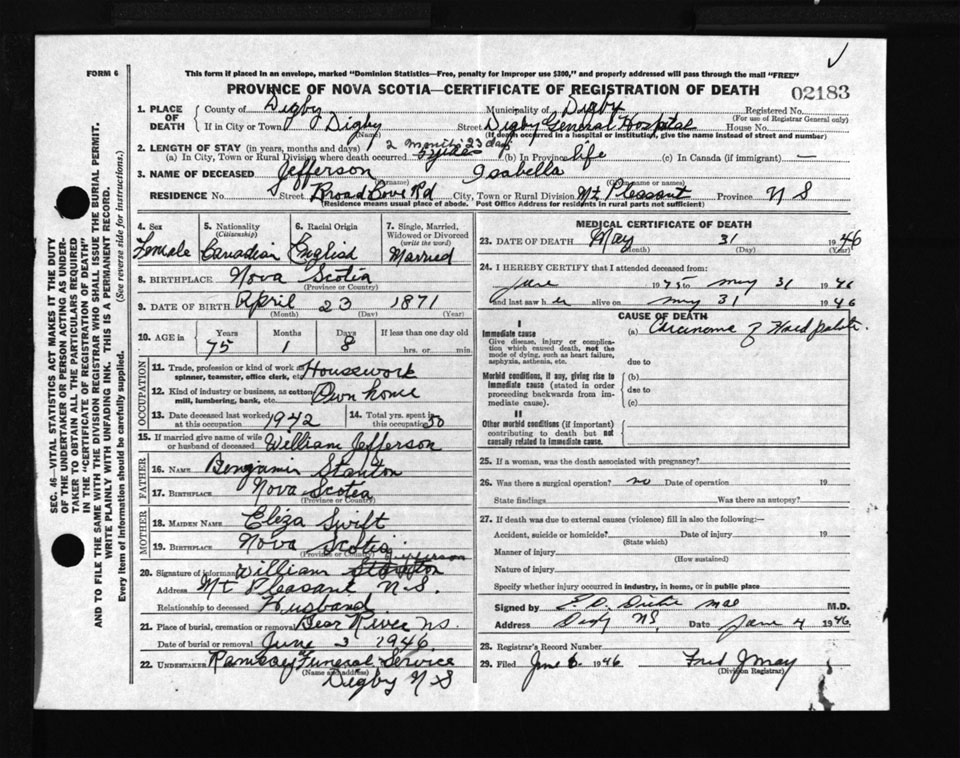 FORM 6
This form if placed in an envelope, marked "Dominion Statistics—Free, penalty for improper use $300," and properly addressed will pass through the mail "FREE"
PROVINCE OF NOVA SCOTIA—CERTIFICATE OF REGISTRATION OF DEATH
02183
1. PLACE OF DEATH
County of Digby Municipality of Digby Registered No.
(For use of Registrar General only)
If in City or Town Digby Street Digby General Hospital House No.
(If death occurred in a hospital or institution, give the name instead of street and number)
2. LENGTH OF STAY (in years, months and days) 2 months 23 days
(a) In City, Town or Rural Division where death occurred (b) In Province life (c) In Canada (if immigrant) —
3. NAME OF DECEASED Jefferson Isabella
(Surname) (Given name or names)
RESIDENCE No. Street Broad Cove Rd City, Town or Rural Division Mt. Pleasant Province N S
(Residence means usual place of abode. Post Office Address for residents in rural parts not sufficient)
SEC. 46—VITAL STATISTICS ACT MAKES IT THE DUTY
OF THE UNDERTAKER OR PERSON ACTING AS UNDER-
TAKER TO OBTAIN ALL THE PARTICULARS REQUIRED
IN THE "CERTIFICATE OF REGISTRATION OF DEATH"
AND TO FILE THE SAME WITH THE DIVISION REGISTRAR WHO SHALL ISSUE THE BURIAL PERMIT.
WRITE PLAINLY WITH UNFADING INK. THIS IS A PERMANENT RECORD.
Every item of information should be carefully supplied. (See reverse side for instructions.)
4. Sex Female
5. Nationality (Citizenship) Canadian
6. Racial Origin English
7. Single, Married, Widowed or Divorced (write the word) Married
8. BIRTHPLACE Nova Scotia
(Province or Country)
9. DATE OF BIRTH April 23 1871
(Month) (Day) (Year)
10. AGE in Years Months Days If less than one day old
75 1 8 hrs. or min.
OCCUPATION
11. Trade, profession or kind of work as spinner, teamster, office clerk, etc. Housework
12. Kind of industry or business, as cotton mill, lumbering, bank, etc. Own home
13. Date deceased last worked at this occupation 1942
14. Total yrs. spent in this occupation 50
15. If married give name of wife or husband of deceased William Jefferson
FATHER
16. NAME Benjamin Stanton
17. BIRTHPLACE Nova Scotia
(Province or Country)
MOTHER
18. MAIDEN NAME Eliza Swift
19. BIRTHPLACE Nova Scotia
(Province or Country)
20. Signature of informant William Jefferson
Address Mt Pleasant N.S.
Relationship to deceased Husband
21. Place of burial, cremation or removal Bear River NS.
Date of burial or removal June 3 1946.
22. UNDERTAKER Ramsay Funeral Service
(Name and address)
Digby N S
MEDICAL CERTIFICATE OF DEATH
23. DATE OF DEATH May 31 1946
(Month) (Day) (Year)
24. I HEREBY CERTIFY that I attended deceased from:
June 1945 to May 31 1946
and last saw her alive on May 31 1946
CAUSE OF DEATH
I
Immediate cause (a) Carcinoma of Hard palate
Give disease, injury or complication which caused death, not the mode of dying, such as heart failure, asphyxia, asthenia, etc.
due to
Morbid conditions, if any, giving rise to immediate cause (stated in order proceeding backwards from immediate cause). (b)
due to
(c)
II
Other morbid conditions (if important) contributing to death but not causally related to immediate cause.
25. If a woman, was the death associated with pregnancy?
26. Was there a surgical operation? no Date of operation 19
State findings Was there an autopsy?
27. If death was due to external causes (violence) fill in also the following:—
Accident, suicide or homicide? Date of injury 19
(State which)
Manner of injury
(How sustained)
Nature of injury
Specify whether injury occurred in industry, in home, or in public place
Signed by M.D.
Address Digby NS, Date June 4 1946.
28. Registrar's Record Number
29. Filed June 6 1946 Fred J May
(Division Registrar)